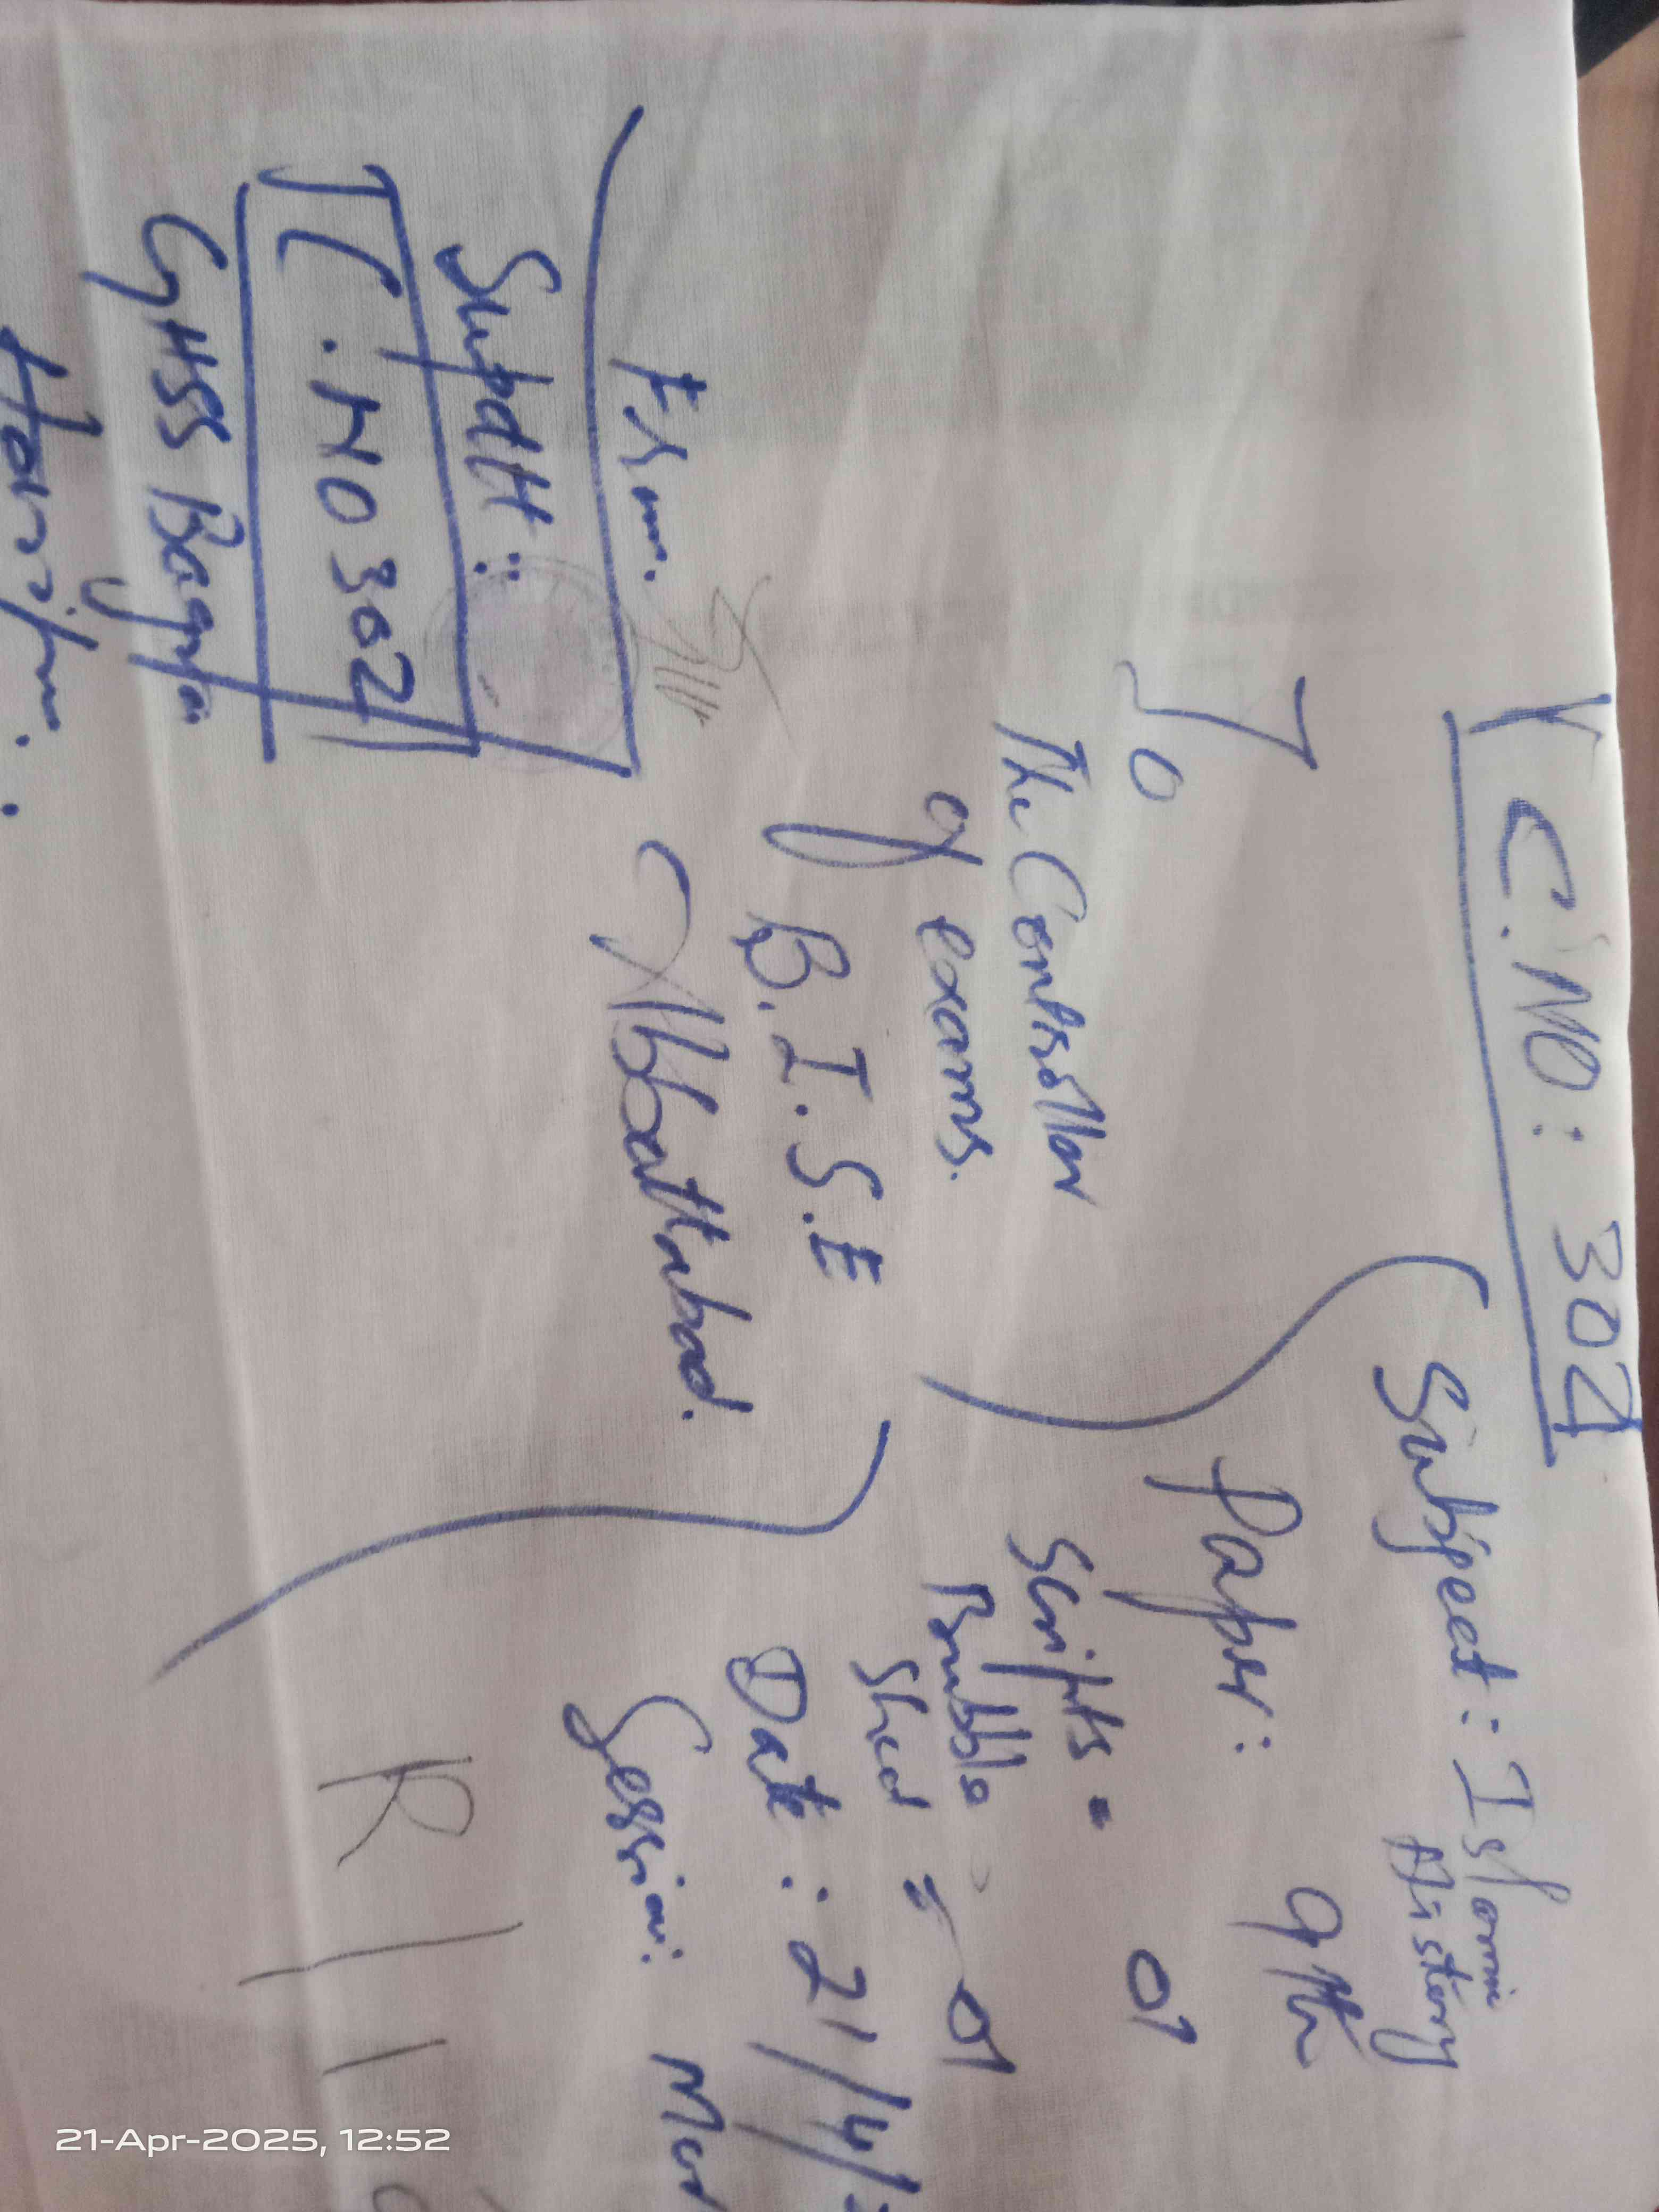 C.NO: 302
Subject: Islamic
History
Paper: 9th
Scripts = 01
Bubble
Sheet = 01
Date: 21/4/
Session: Mor
To
The Controller
of exams.
B.I.S.E
Abbottabad.
From.
Supdtt:
C.NO 302
GHSS Bagra
Haripur.
R
21-Apr-2025, 12:52